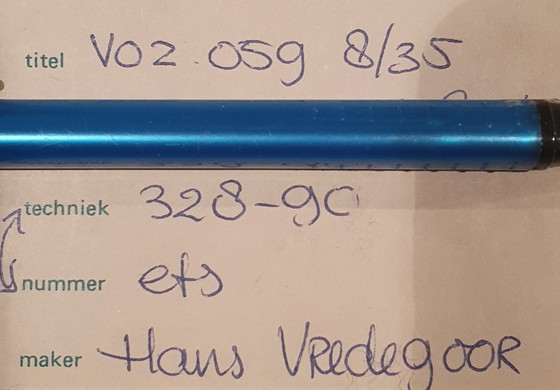 titel VOZ.059 8/35
techniek 328-90
nummer ets
maker Hans Vredegoor